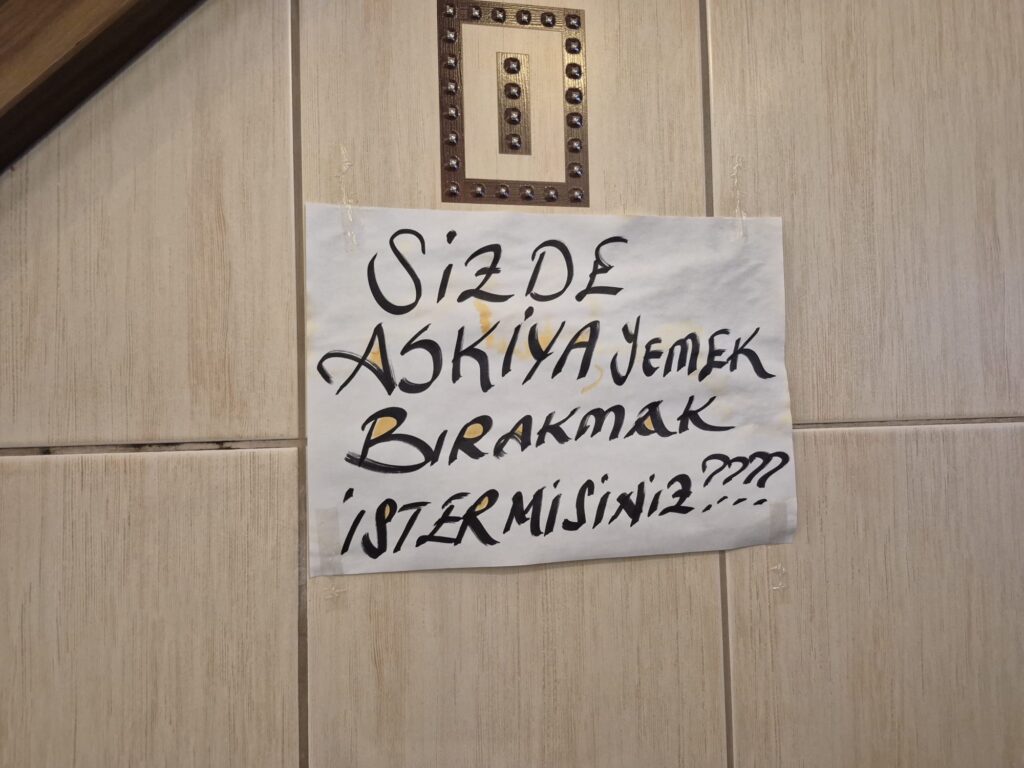 SİZDE
ASKİYA YEMEK
BIRAKMAK
İSTERMİSİNİZ????